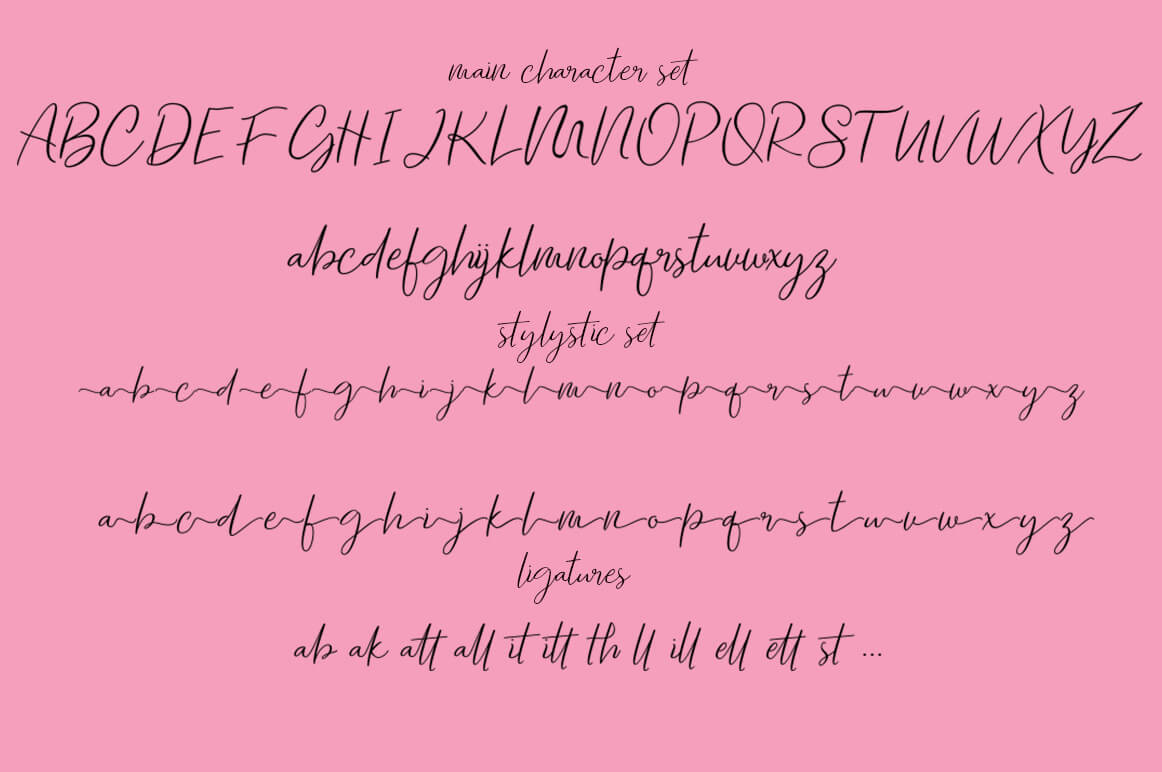 main character set
ABCDEFGHIJKLMNOPQRSTUVWXYZ
abcdefghijklmnopqrstuvwxyz
stylystic set
abcdefghijklmnopqrstuvwxyz
abcdefghijklmnopqrstuvwxyz
ligatures
ab ak att all it itt th ll ill ell ett st ...